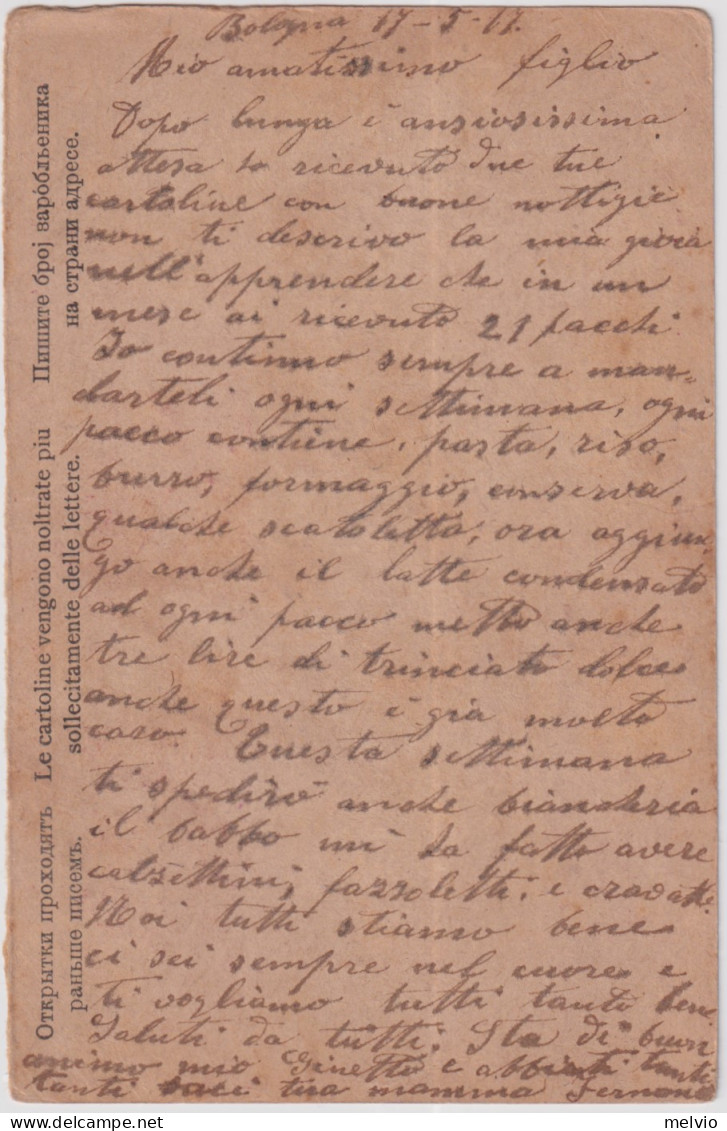 Bologna 17-5-17.
Mio amatissimo figlio
Dopo lunga e ansiosissima
attesa ho ricevuto due tue
cartoline con buone nottigie
non ti descrivo la mia gioia
nell'apprendere che in un
mese ai ricevuto 21 pacchi
Io continuo sempre a man-
darteli ogni settimana, ogni
pacco contiene, pasta, riso,
burro, formaggio, conserva,
qualche scatoletta, ora aggiun
go anche il latte condensato
ad ogni pacco metto anche
tre lire di trinciato dolce
anche questo è già molto
caro. Questa settimana
ti spedirò anche biancheria
il babbo mi ha fatto avere
calzettini, fazzoletti, e cravatte.
Noi tutti stiamo bene
ci sei sempre nel cuore e
ti vogliamo tutti tanto bene
Saluti da tutti. Sta di buon
animo mio Ginetto e abbiati tanti
tanti baci tua mamma
Пишите број заробљеника
на страни адресе.
Le cartoline vengono noltrate piu
sollecitamente delle lettere.
Открытки проходятъ
раньше писемъ.
delcampe.net
melvio